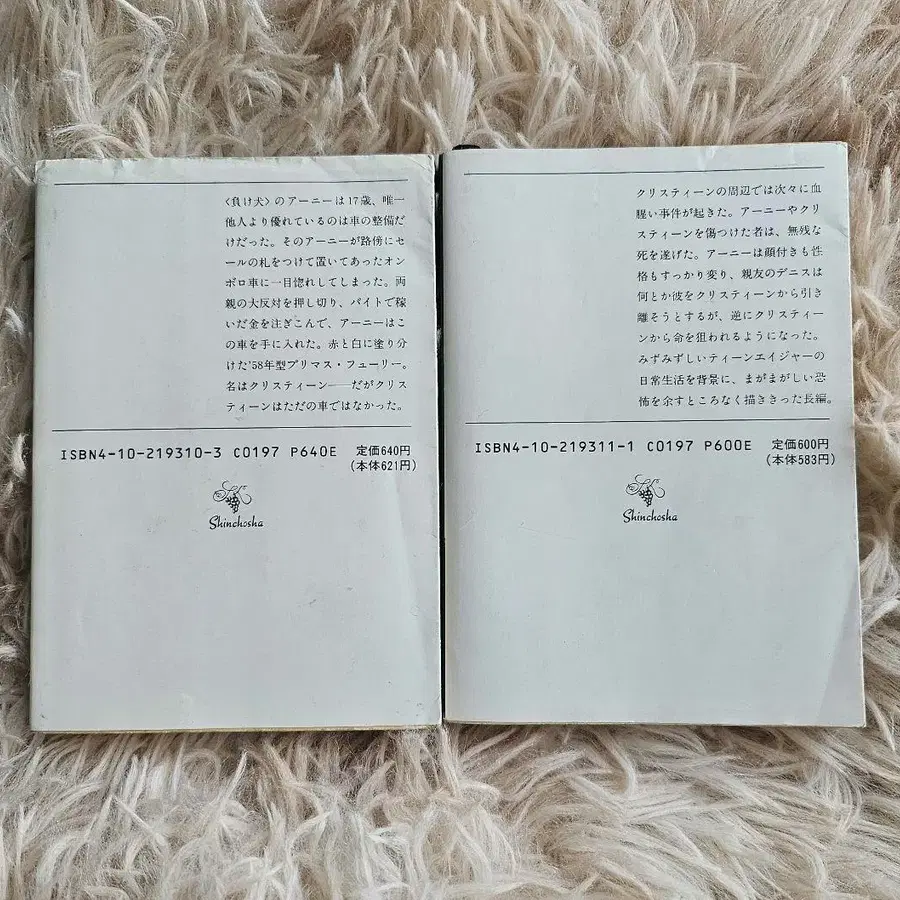 〈負け犬〉のアーニーは17歳、唯一
他人より優れているのは車の整備だ
けだった。そのアーニーが路傍にセ
ールの札をつけて置いてあったオン
ボロ車に一目惚れしてしまった。両
親の大反対を押し切り、バイトで稼
いだ金を注ぎこんで、アーニーはこ
の車を手に入れた。赤と白に塗り分
けた'58年型プリマス・フューリー。
名はクリスティーン──だがクリス
ティーンはただの車ではなかった。
ISBN4-10-219310-3 C0197 P640E 定価640円
(本体621円)
Shinchosha
クリスティーンの周辺では次々に血
腥い事件が起きた。アーニーやクリ
スティーンを傷つけた者は、無残な
死を遂げた。アーニーは顔付きも性
格もすっかり変り、親友のデニスは
何とか彼をクリスティーンから引き
離そうとするが、逆にクリスティー
ンから命を狙われるようになった。
みずみずしいティーンエイジャーの
日常生活を背景に、まがまがしい恐
怖を余すところなく描ききった長編。
ISBN4-10-219311-1 C0197 P600E 定価600円
(本体583円)
Shinchosha